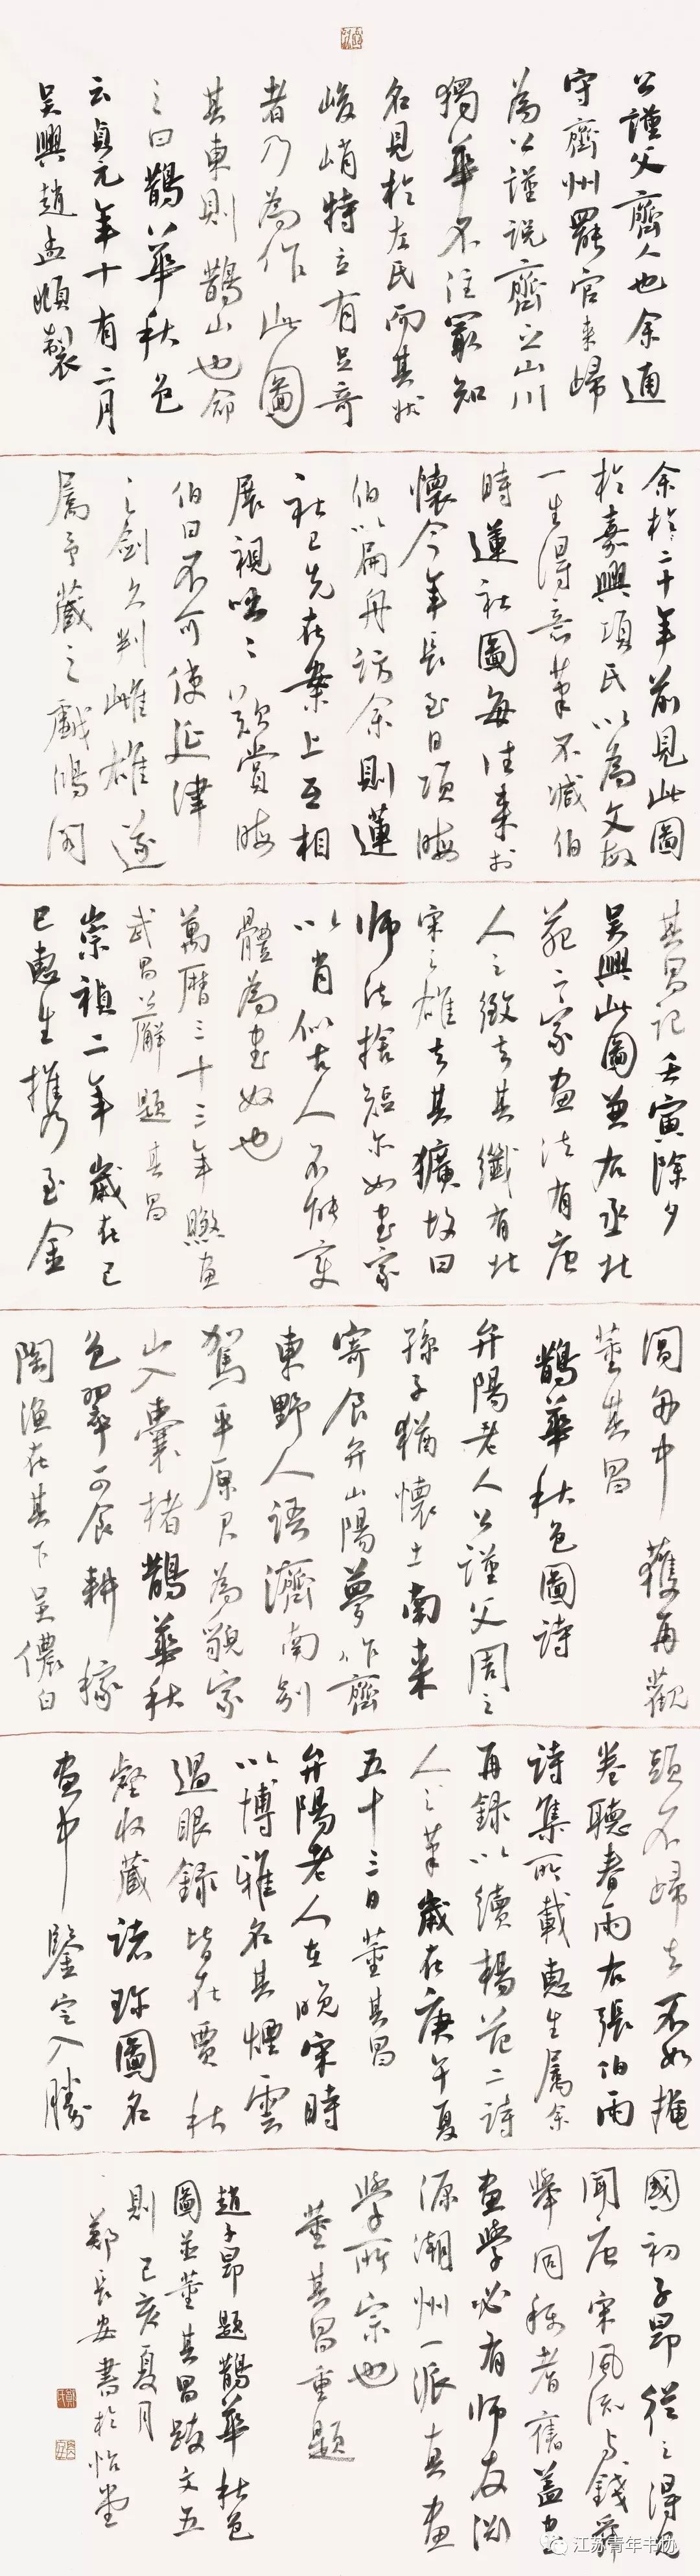 公謹父齊人也余通
守齊州罷官來歸
為公謹說齊之山川
獨華不注最知
名見於左氏而其狀
峻峭特立有足奇
者乃為作此圖
其東則鵲山也命
之曰鵲華秋色
云貞元年十有二月
吳興趙孟頫製
余於二十年前見此圖
於嘉興項氏以為文敏
一生得意筆不減伯
時蓮社圖每往來於
懷今年長至日項晦
伯以扁舟訪余則蓮
社已先在案上互相
展視咄咄歎賞晦
伯曰不可使延津
之劍久判雌雄遂
屬予藏之戲鴻閣
其昌記壬寅除夕
吳興此圖兼右丞北
苑二家畫法有唐
人之緻去其纖有北
宋之雄去其獷故曰
師法捨短亦如書家
以肖似古人不能變
體為書奴也
萬曆三十三年㬠畫
武昌公廨題其昌
崇禎二年歲在己
巳惠生攜至金
閶舟中獲再觀
董其昌
鵲華秋色圖詩
弁陽老人公謹父周之
孫子猶懷土南來
寄食弁山陽夢作齊
東野人語濟南別
駕平原君為貌家
山入囊楮鵲華秋
色翠可食耕稼
陶漁在其下吳儂白
頭不歸去不如掩
卷聽春雨右張伯雨
詩集所載惠生屬余
再錄以續楊范二詩
人之筆歲在庚午夏
五十三日董其昌
弁陽老人在晚宋時
以博雅名其煙雲
過眼錄皆在賈秋
壑收藏諸珍圖名
畫中鑒定入勝
國初子昂從之得見
聞唐宋風流與錢舜
舉同稱耆舊蓋書
畫學必有師友淵
源湖州一派真畫
學所宗也
董其昌重題
趙子昂題鵲華秋色
圖並董其昌跋文五
則己亥夏月
鄭長安書於怡堂
江苏青年书协